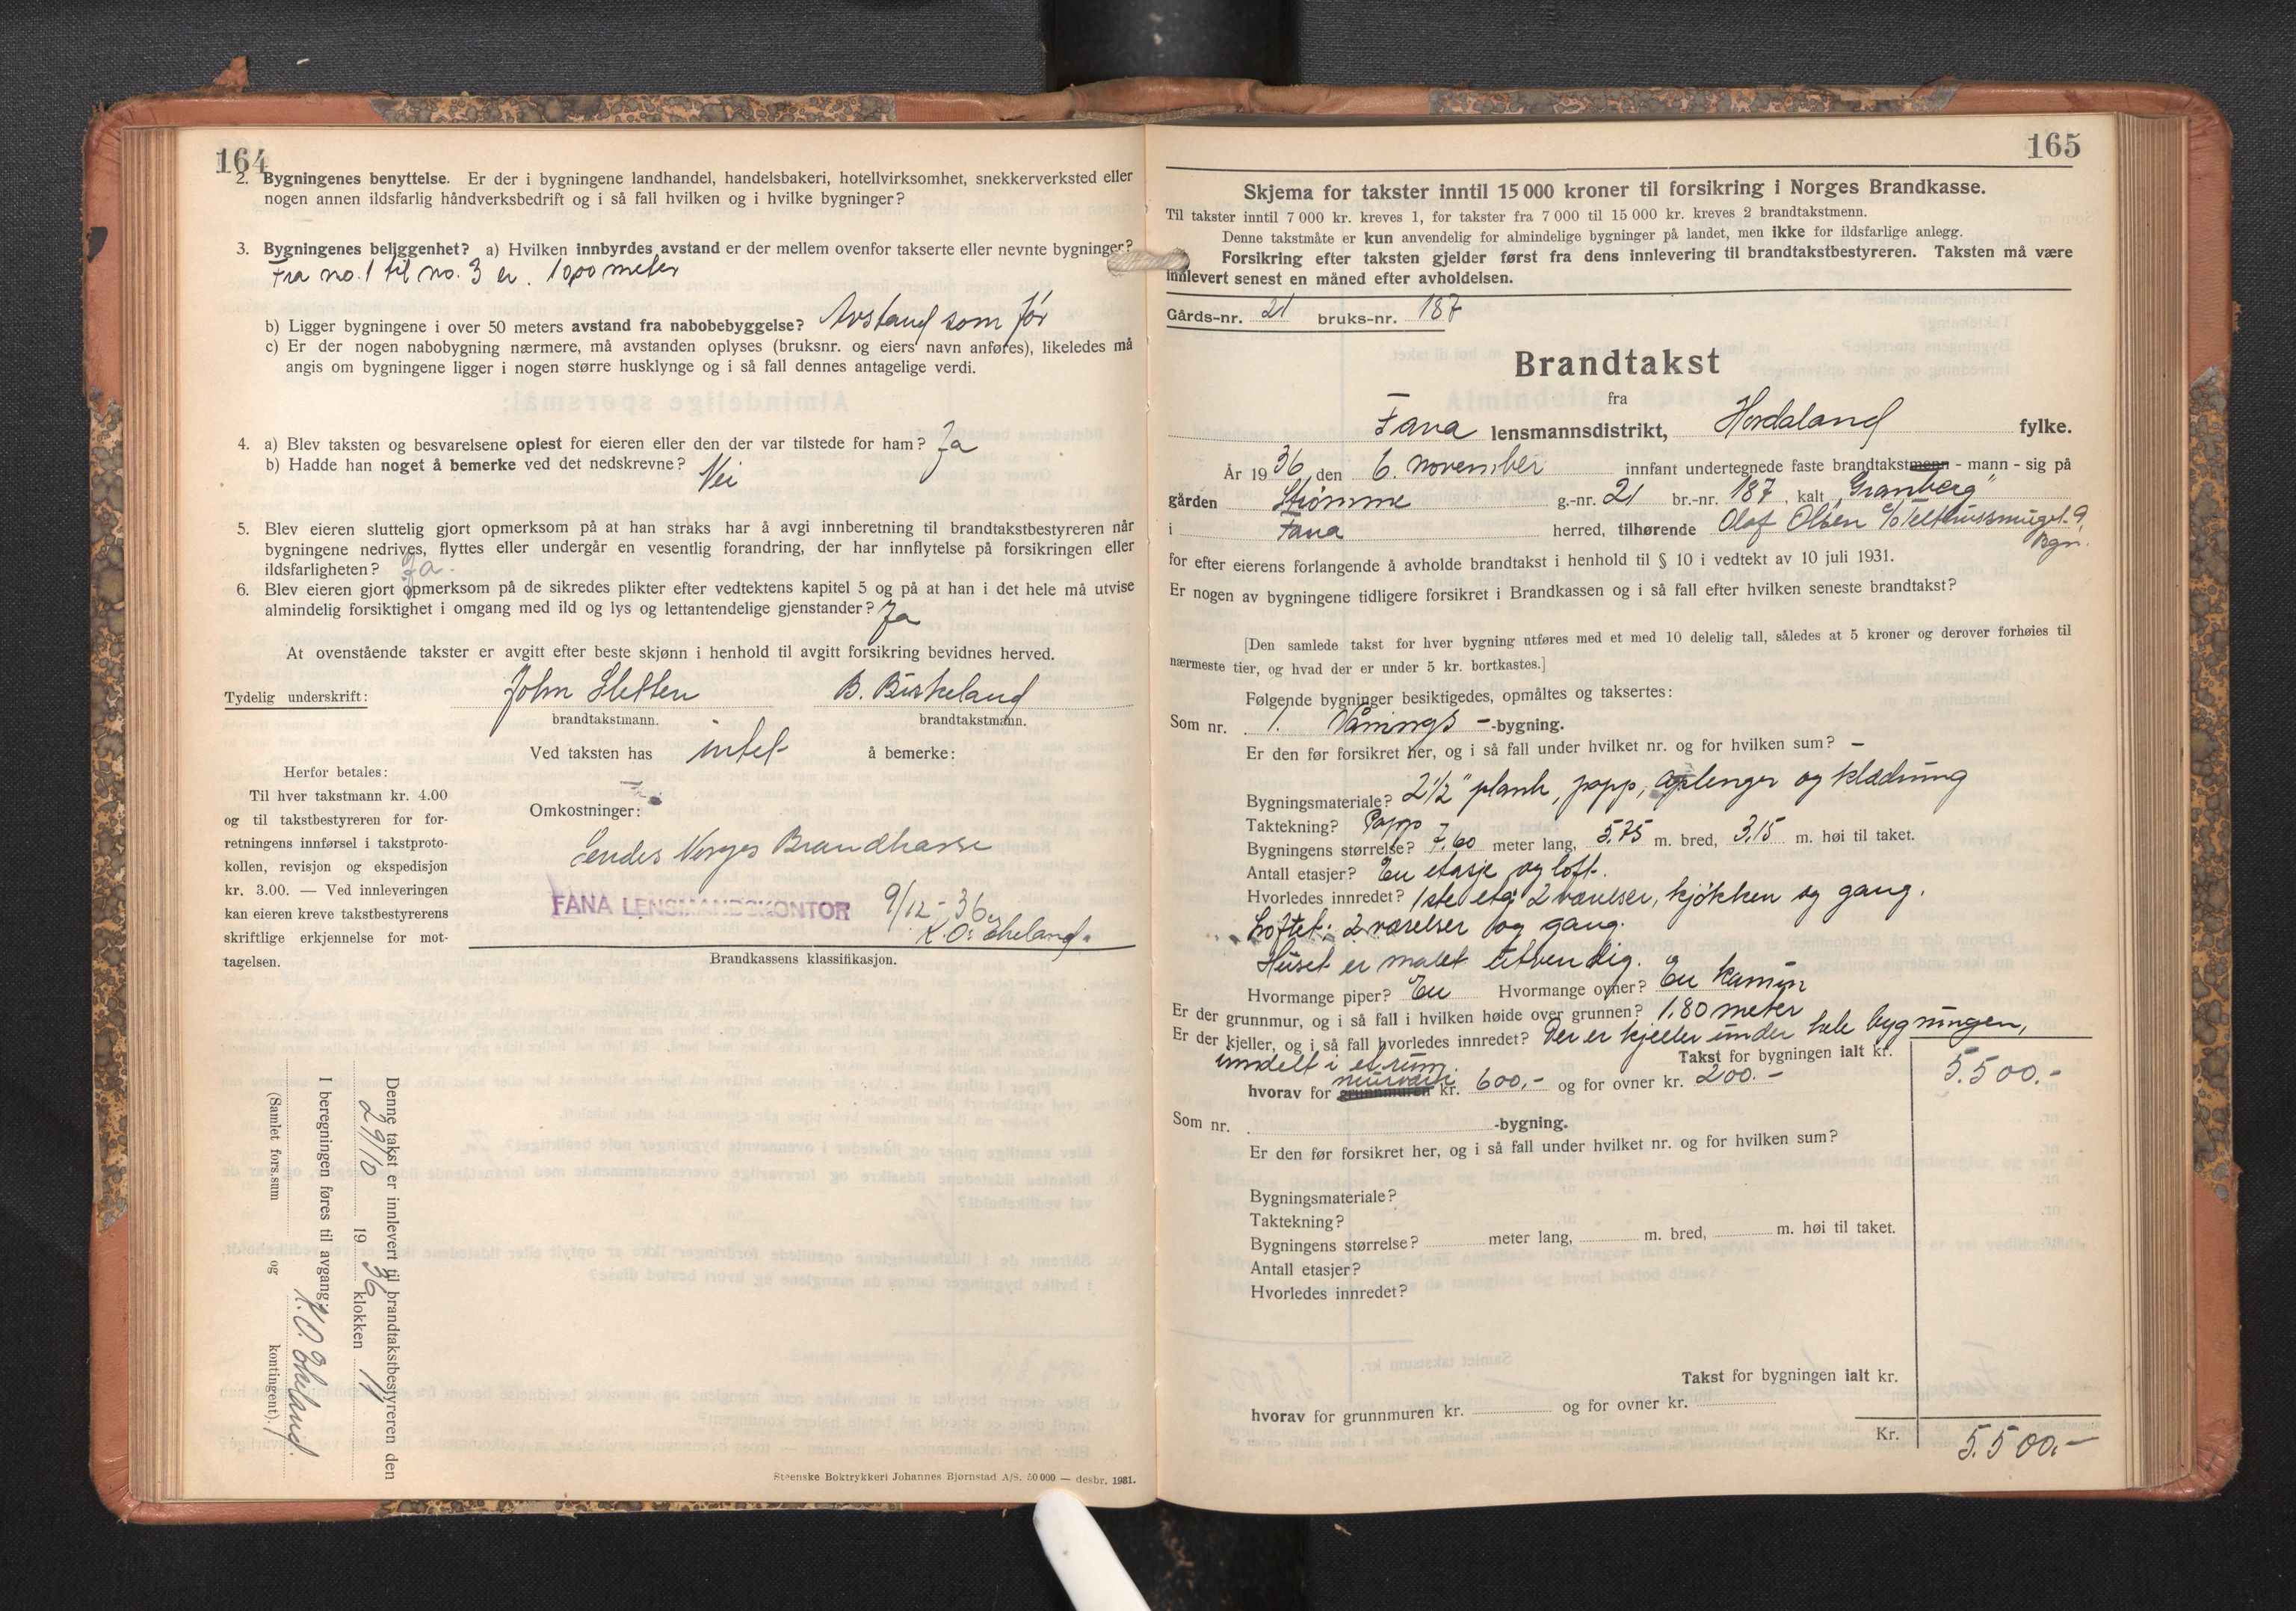 164
2. Bygningenes benyttelse. Er der i bygningene landhandel, handelsbakeri, hotellvirksomhet, snekkerverksted eller
nogen annen ildsfarlig håndverksbedrift og i så fall hvilken og i hvilke bygninger?
3. Bygningenes beliggenhet? a) Hvilken innbyrdes avstand er der mellem ovenfor takserte eller nevnte bygninger?
Fra no. 1 til no. 3 er. 1000 meter
b) Ligger bygningene i over 50 meters avstand fra nabobebyggelse? Avstand som før
c) Er der nogen nabobygning nærmere, må avstanden oplyses (bruksnr. og eiers navn anføres), likeledes må
angis om bygningene ligger i nogen større husklynge og i så fall dennes antagelige verdi.
4. a) Blev taksten og besvarelsene oplest for eieren eller den der var tilstede for ham? Ja
b) Hadde han noget å bemerke ved det nedskrevne? Nei
5. Blev eieren sluttelig gjort opmerksom på at han straks har å avgi innberetning til brandtakstbestyreren når
bygningene nedrives, flyttes eller undergår en vesentlig forandring, der har innflytelse på forsikringen eller
ildsfarligheten? Ja.
6. Blev eieren gjort opmerksom på de sikredes plikter efter vedtektens kapitel 5 og på at han i det hele må utvise
almindelig forsiktighet i omgang med ild og lys og lettantendelige gjenstander? Ja
At ovenstående takster er avgitt efter beste skjønn i henhold til avgitt forsikring bevidnes herved.
Tydelig underskrift: John Sletten B. Birkeland
brandtakstmann. brandtakstmann.
Ved taksten has intet å bemerke:
Omkostninger:
Sendes Norges Brandkasse
FANA LENSMANDSKONTOR 9/12 - 36
K. O. Ekeland.
Brandkassens klassifikasjon.
Herfor betales:
Til hver takstmann kr. 4.00
og til takstbestyreren for for-
retningens innførsel i takstproto-
kollen, revisjon og ekspedisjon
kr. 3.00. — Ved innleveringen
kan eieren kreve takstbestyrerens
skriftlige erkjennelse for mot-
tagelsen.
Denne takst er innlevert til brandtakstbestyreren den
29/10 19 36 klokken 11
I beregningen føres til avgang:
K. O. Ekeland.
(Samlet fors.sum og kontingent).
Steenske Boktrykkeri Johannes Bjørnstad A/S. 50 000 — desbr. 1931.
165
Skjema for takster inntil 15 000 kroner til forsikring i Norges Brandkasse.
Til takster inntil 7 000 kr. kreves 1, for takster fra 7 000 til 15 000 kr. kreves 2 brandtakstmenn.
Denne takstmåte er kun anvendelig for almindelige bygninger på landet, men ikke for ildsfarlige anlegg.
Forsikring efter taksten gjelder først fra dens innlevering til brandtakstbestyreren. Taksten må være
innlevert senest en måned efter avholdelsen.
Gårds-nr. 21 bruks-nr. 187
Brandtakst
fra
Fana lensmannsdistrikt, Hordaland fylke.
År 1936, den 6. november innfant undertegnede faste brandtakstmenn - mann - sig på
gården Strømme g.-nr. 21 br.-nr. 187, kalt „Granberg"
i Fana herred, tilhørende Olaf Olsen c/o Telthussmuget 9,
Bgn.
for efter eierens forlangende å avholde brandtakst i henhold til § 10 i vedtekt av 10 juli 1931.
Er nogen av bygningene tidligere forsikret i Brandkassen og i så fall efter hvilken seneste brandtakst?
[Den samlede takst for hver bygning utføres med et med 10 delelig tall, således at 5 kroner og derover forhøies til
nærmeste tier, og hvad der er under 5 kr. bortkastes.]
Følgende bygninger besiktigedes, opmåltes og taksertes:
Som nr. 1. Vånings - -bygning.
Er den før forsikret her, og i så fall under hvilket nr. og for hvilken sum? —
Bygningsmateriale? 2 1/2" plank, papp, oplenger og klædning
Taktekning? Papp
Bygningens størrelse? 7,60 meter lang, 5.75 m. bred, 3,15 m. høi til taket.
Antall etasjer? En etasje og loft.
Hvorledes innredet? 1ste etg. 2 værelser, kjøkken og gang.
Loftet: 2 værelser og gang.
Huset er malet utvendig.
Hvormange piper? En Hvormange ovner? En kamin
Er der grunnmur, og i så fall i hvilken høide over grunnen? 1,80 meter
Er der kjeller, og i så fall hvorledes innredet? Der er kjeller under hele bygningen,
inndelt i et rum. Takst for bygningen ialt kr. 5.500.-
hvorav for grunnmuren kr. 600,- og for ovner kr. 200.-
Som nr. -bygning.
Er den før forsikret her, og i så fall under hvilket nr. og for hvilken sum?
Bygningsmateriale?
Taktekning?
Bygningens størrelse? meter lang, m. bred, m. høi til taket.
Antall etasjer?
Hvorledes innredet?
Takst for bygningen ialt kr.
hvorav for grunnmuren kr. og for ovner kr.
Kr. 5.500,-